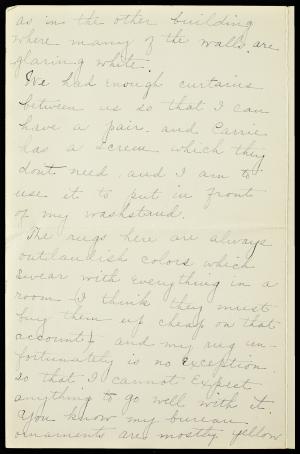 as in the other building
where many of the walls are
glaring white.
We had enough curtains
between us so that I can
have a pair and Carrie
has a screen which they
dont need and I am to
use it to put in front
of my washstand.
The rugs here are always
outlandish colors which
swear with everything in a
room (I think they must
buy them up cheap on that
account) and my rug un-
fortunately is no exception
so that I cannot expect
anything to go well with it.
You know my bureau
ornaments are mostly yellow